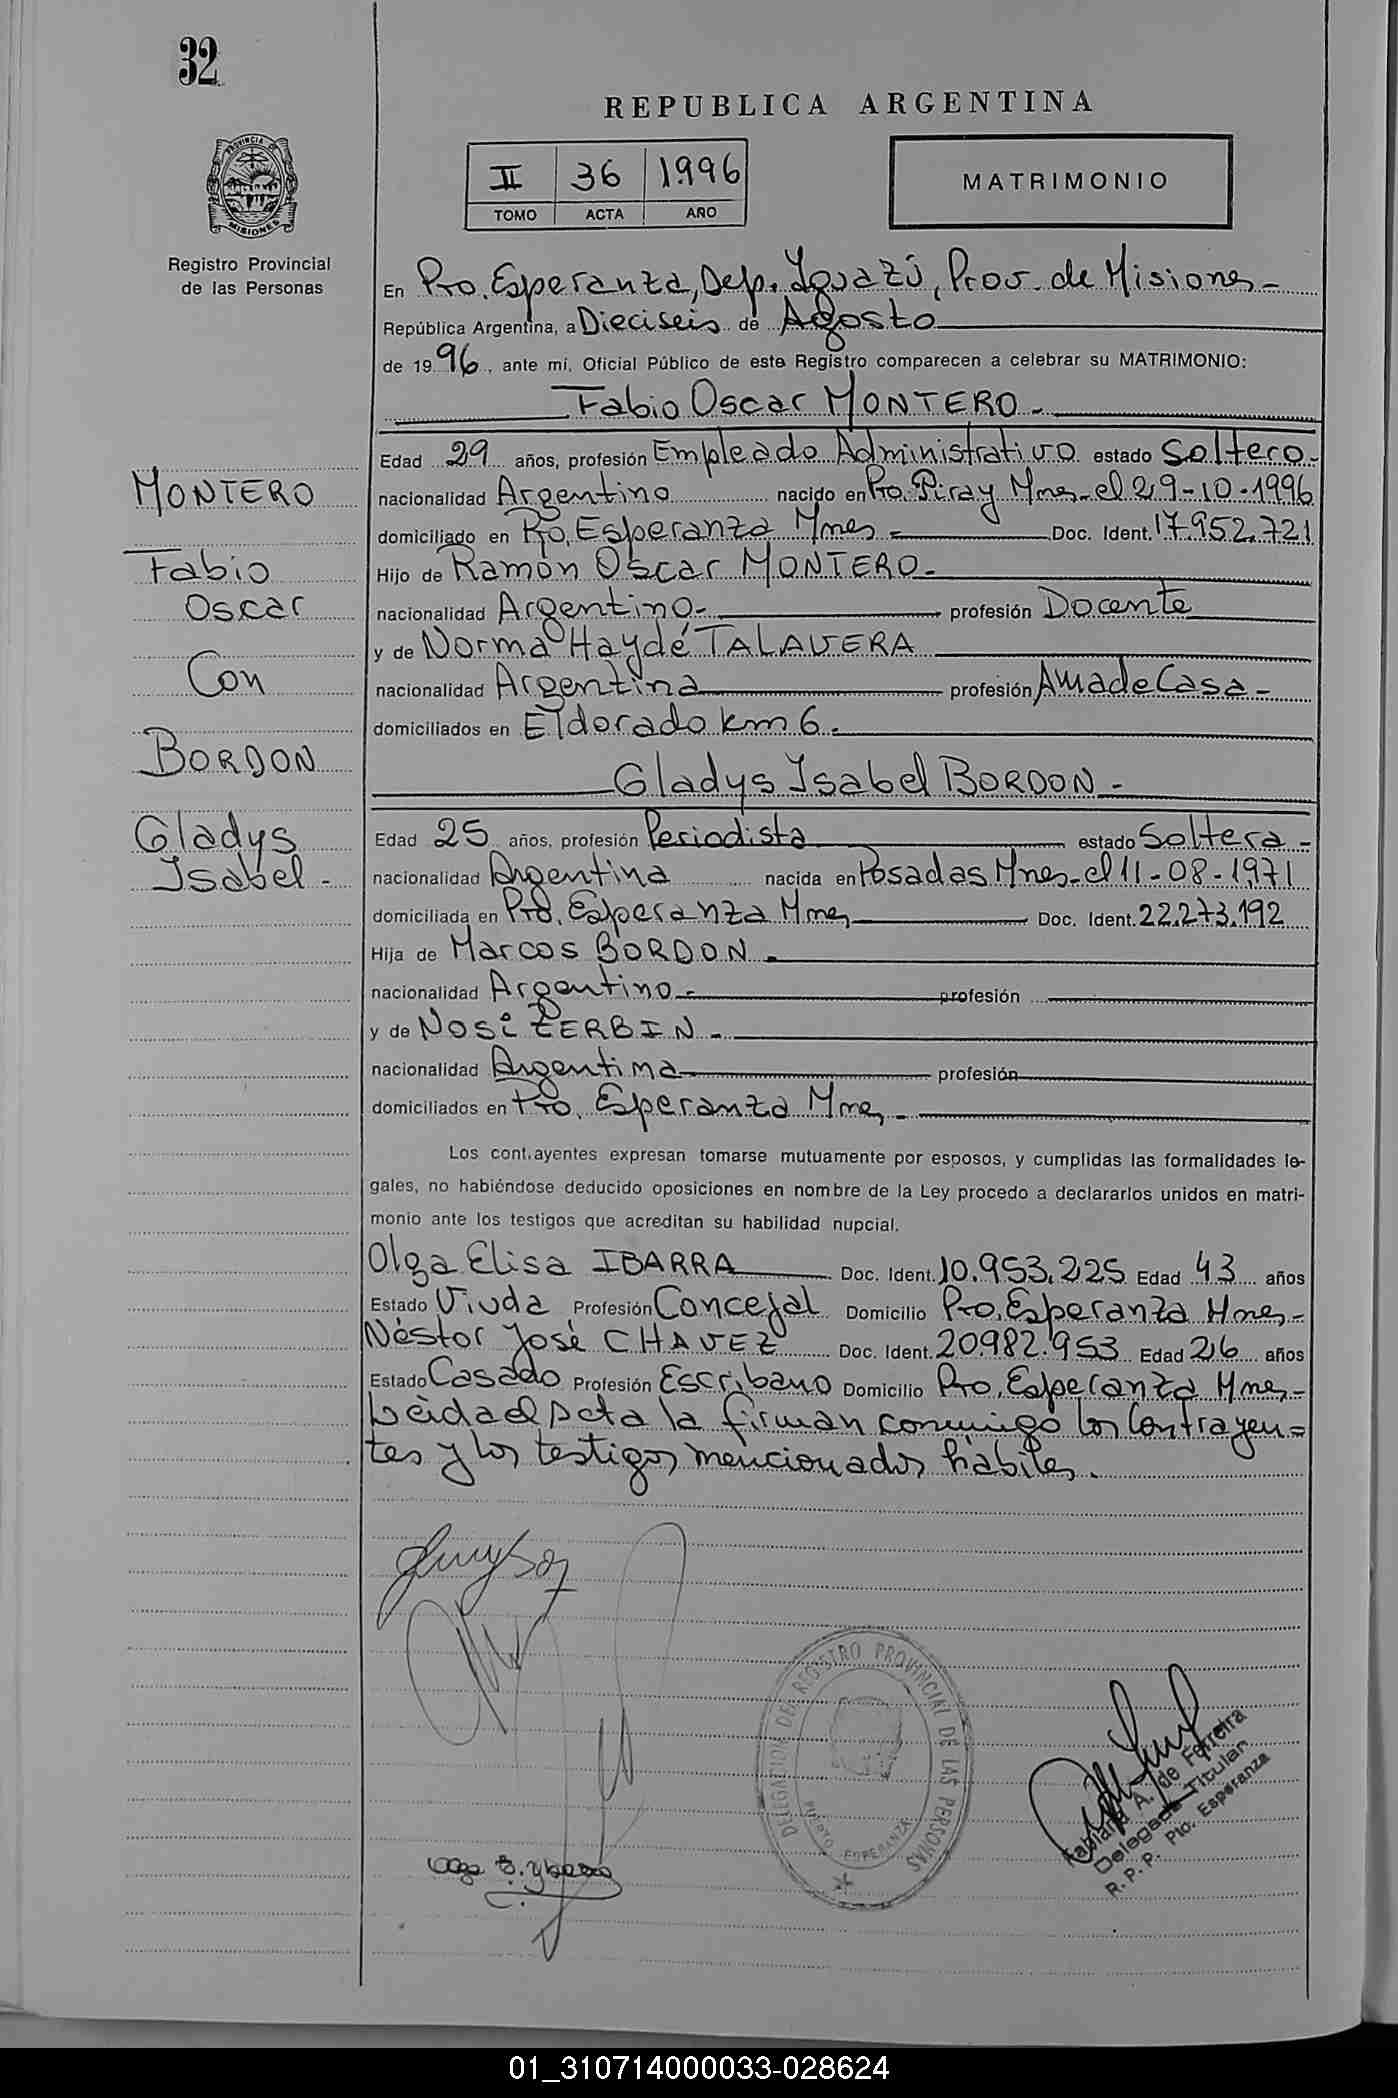 32
REPUBLICA ARGENTINA
II 36 1996
TOMO ACTA AÑO
MATRIMONIO
PROVINCIA DE
MISIONES
Registro Provincial
de las Personas
En Pto. Esperanza, Dep. Iguazú, Prov. de Misiones -
República Argentina, a Dieciseis de Agosto
de 19 96, ante mí, Oficial Público de este Registro comparecen a celebrar su MATRIMONIO:
Fabio Oscar MONTERO -
Edad 29 años, profesión Empleado Administrativo estado Soltero -
nacionalidad Argentino nacido en Pto. Piray Mnes - el 29-10-1996
domiciliado en Pto. Esperanza Mnes - Doc. Ident. 17.952.721
Hijo de Ramón Oscar MONTERO -
nacionalidad Argentino - profesión Docente
y de Norma Haydé TALAVERA
nacionalidad Argentina profesión Ama de Casa -
domiciliados en Eldorado km 6 -
Gladys Isabel BORDON -
Edad 25 años, profesión Periodista estado Soltera -
nacionalidad Argentina nacida en Posadas Mnes - el 11-08-1971
domiciliada en Pto. Esperanza Mnes Doc. Ident. 22.273.192
Hija de Marcos BORDON -
nacionalidad Argentino - profesión
y de Nosi ZERBIN -
nacionalidad Argentina profesión
domiciliados en Pto. Esperanza Mnes -
MONTERO
Fabio
Oscar
Con
BORDON
Gladys
Isabel -
Los cont.ayentes expresan tomarse mutuamente por esposos, y cumplidas las formalidades le-
gales, no habiéndose deducido oposiciones en nombre de la Ley procedo a declararlos unidos en matri-
monio ante los testigos que acreditan su habilidad nupcial.
Olga Elisa IBARRA Doc. Ident. 10.953.225 Edad 43 años
Estado Viuda Profesión Concejal Domicilio Pto. Esperanza Mnes -
Néstor José CHAVEZ Doc. Ident. 20.982.953 Edad 26 años
Estado Casado Profesión Escribano Domicilio Pto. Esperanza Mnes -
Leída el Acta la firman conmigo los Contrayen=
tes y los testigos mencionados hábiles.
DELEGACION DEL REGISTRO PROVINCIAL DE LAS PERSONAS
PUERTO ESPERANZA
Fabiana A. de Ferreira
Delegada Titular
R. P. P. Pto. Esperanza
01_310714000033-028624